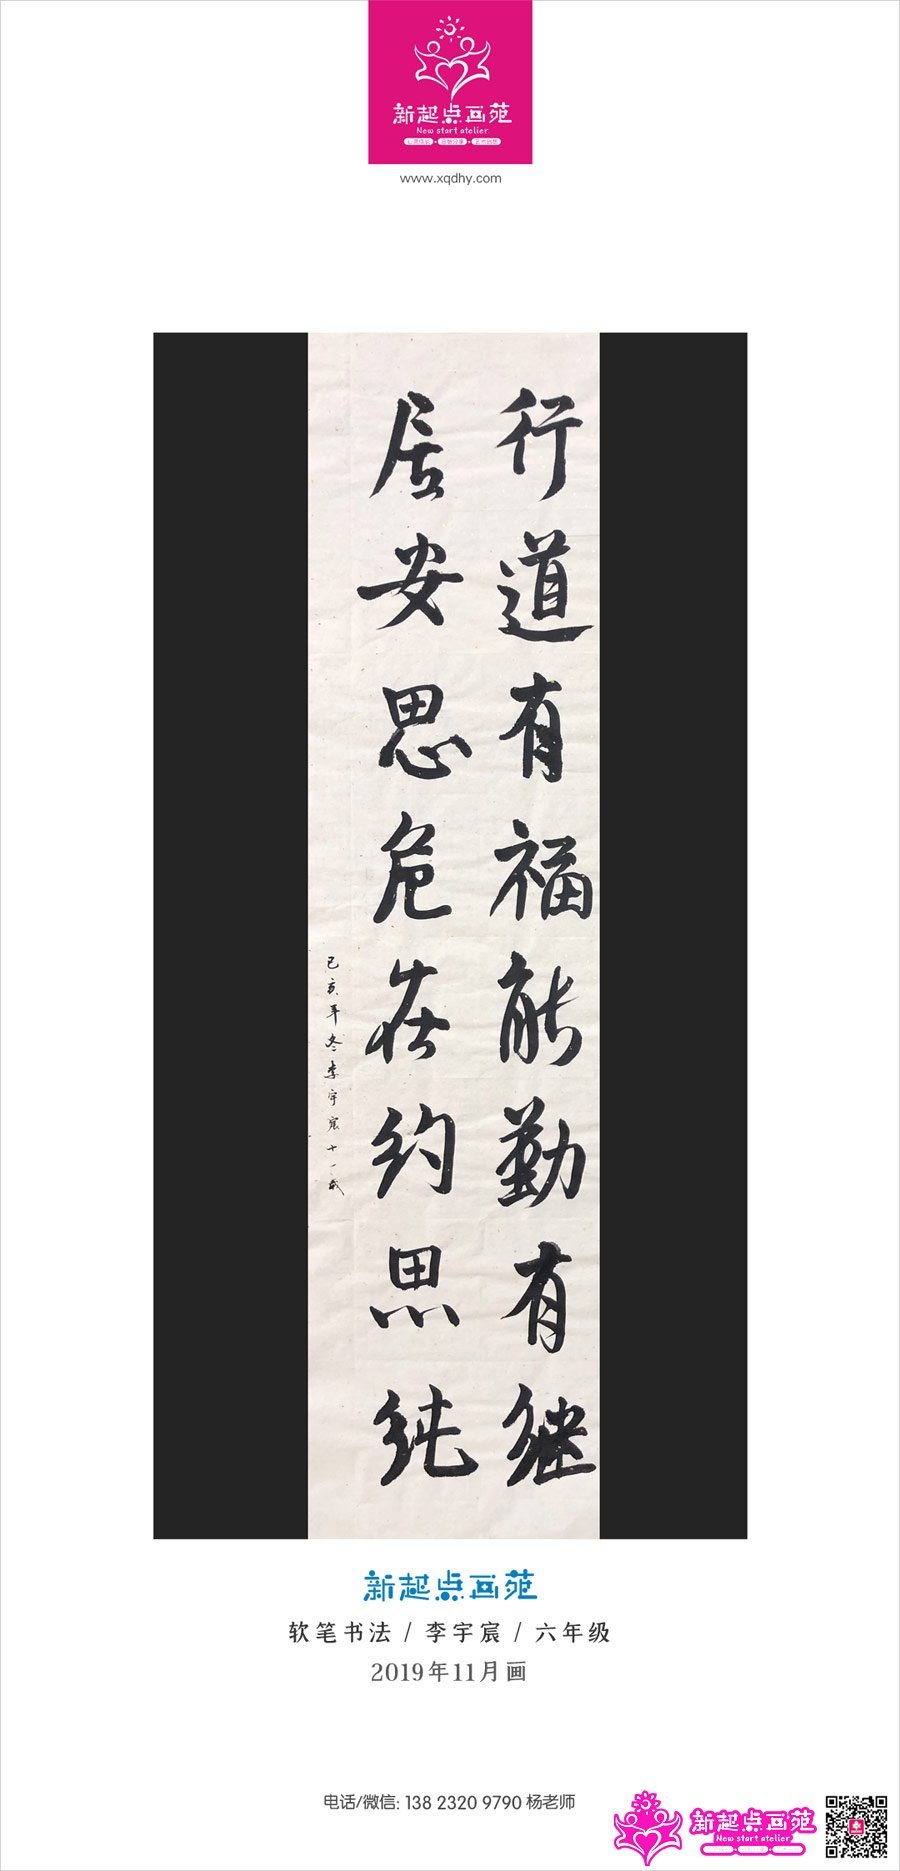 新起点画苑
New start atelier
www.xqdhy.com
行道有福能勤有继
居安思危在约思纯
己亥年冬李宇宸十一岁
新起点画苑
软笔书法 / 李宇宸 / 六年级
2019年11月画
电话/微信: 138 2320 9790 杨老师
新起点画苑
New start atelier